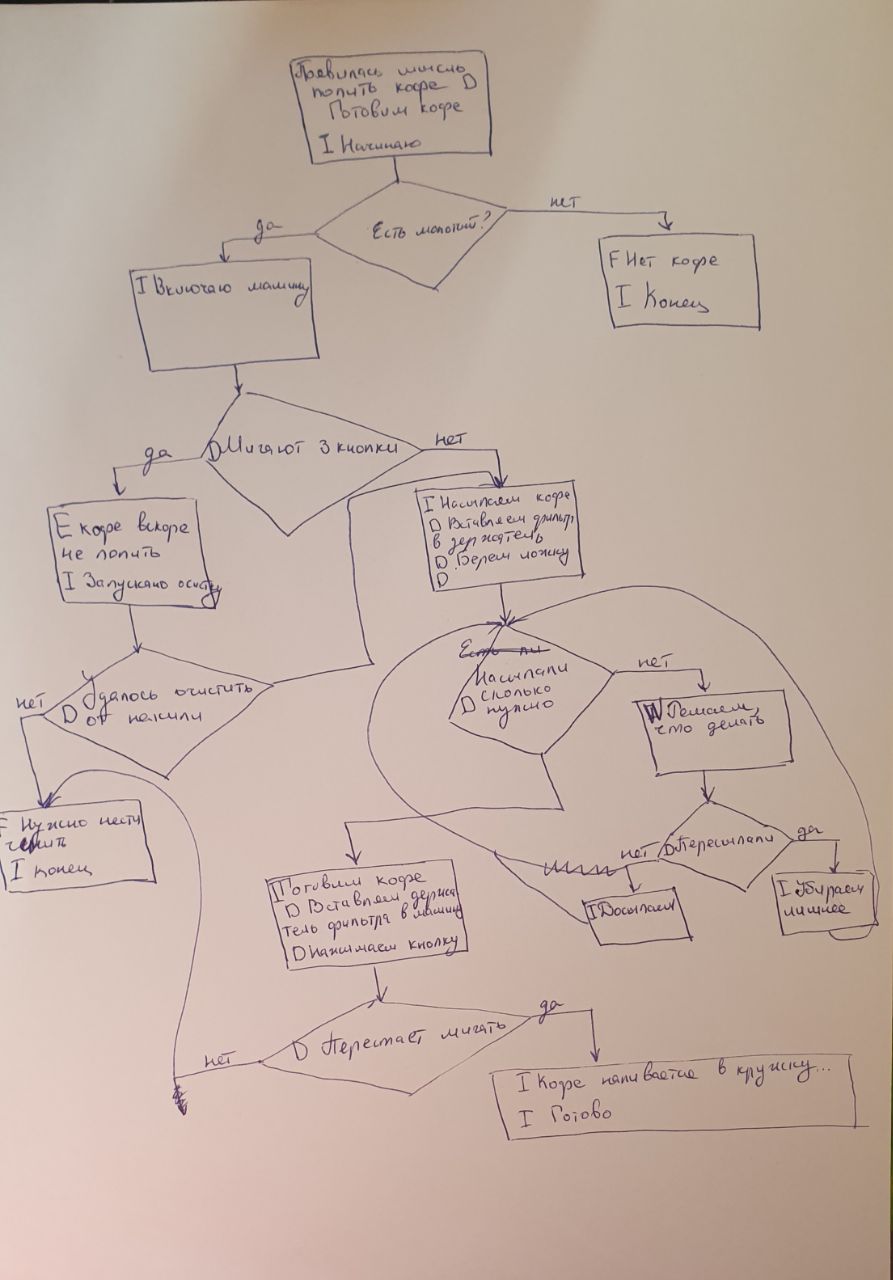 Появилась мысль
попить кофе D
Готовим кофе
I Начинаю
Есть молотый?
да
нет
F Нет кофе
I Конец
I Включаю машину
D Мигают 3 кнопки
да
нет
E кофе вскоре
не попить
I Запускаю очистку
I Насыпаем кофе
D Вставляем фильтр
в держатель
D Берем ложку
D
D Удалось очистить
от накипи
нет
Есть ли
Насыпали
D сколько
нужно
нет
W Решаем,
что делать
F Нужно нести
чинить
I конец
D Пересыпали
нет
да
I Досыпаем
I Убираем
лишнее
I Готовим кофе
D Вставляем держа
тель фильтра в машину
D Нажимаем кнопку
D Перестает мигать
нет
да
I Кофе наливается в кружку...
I Готово